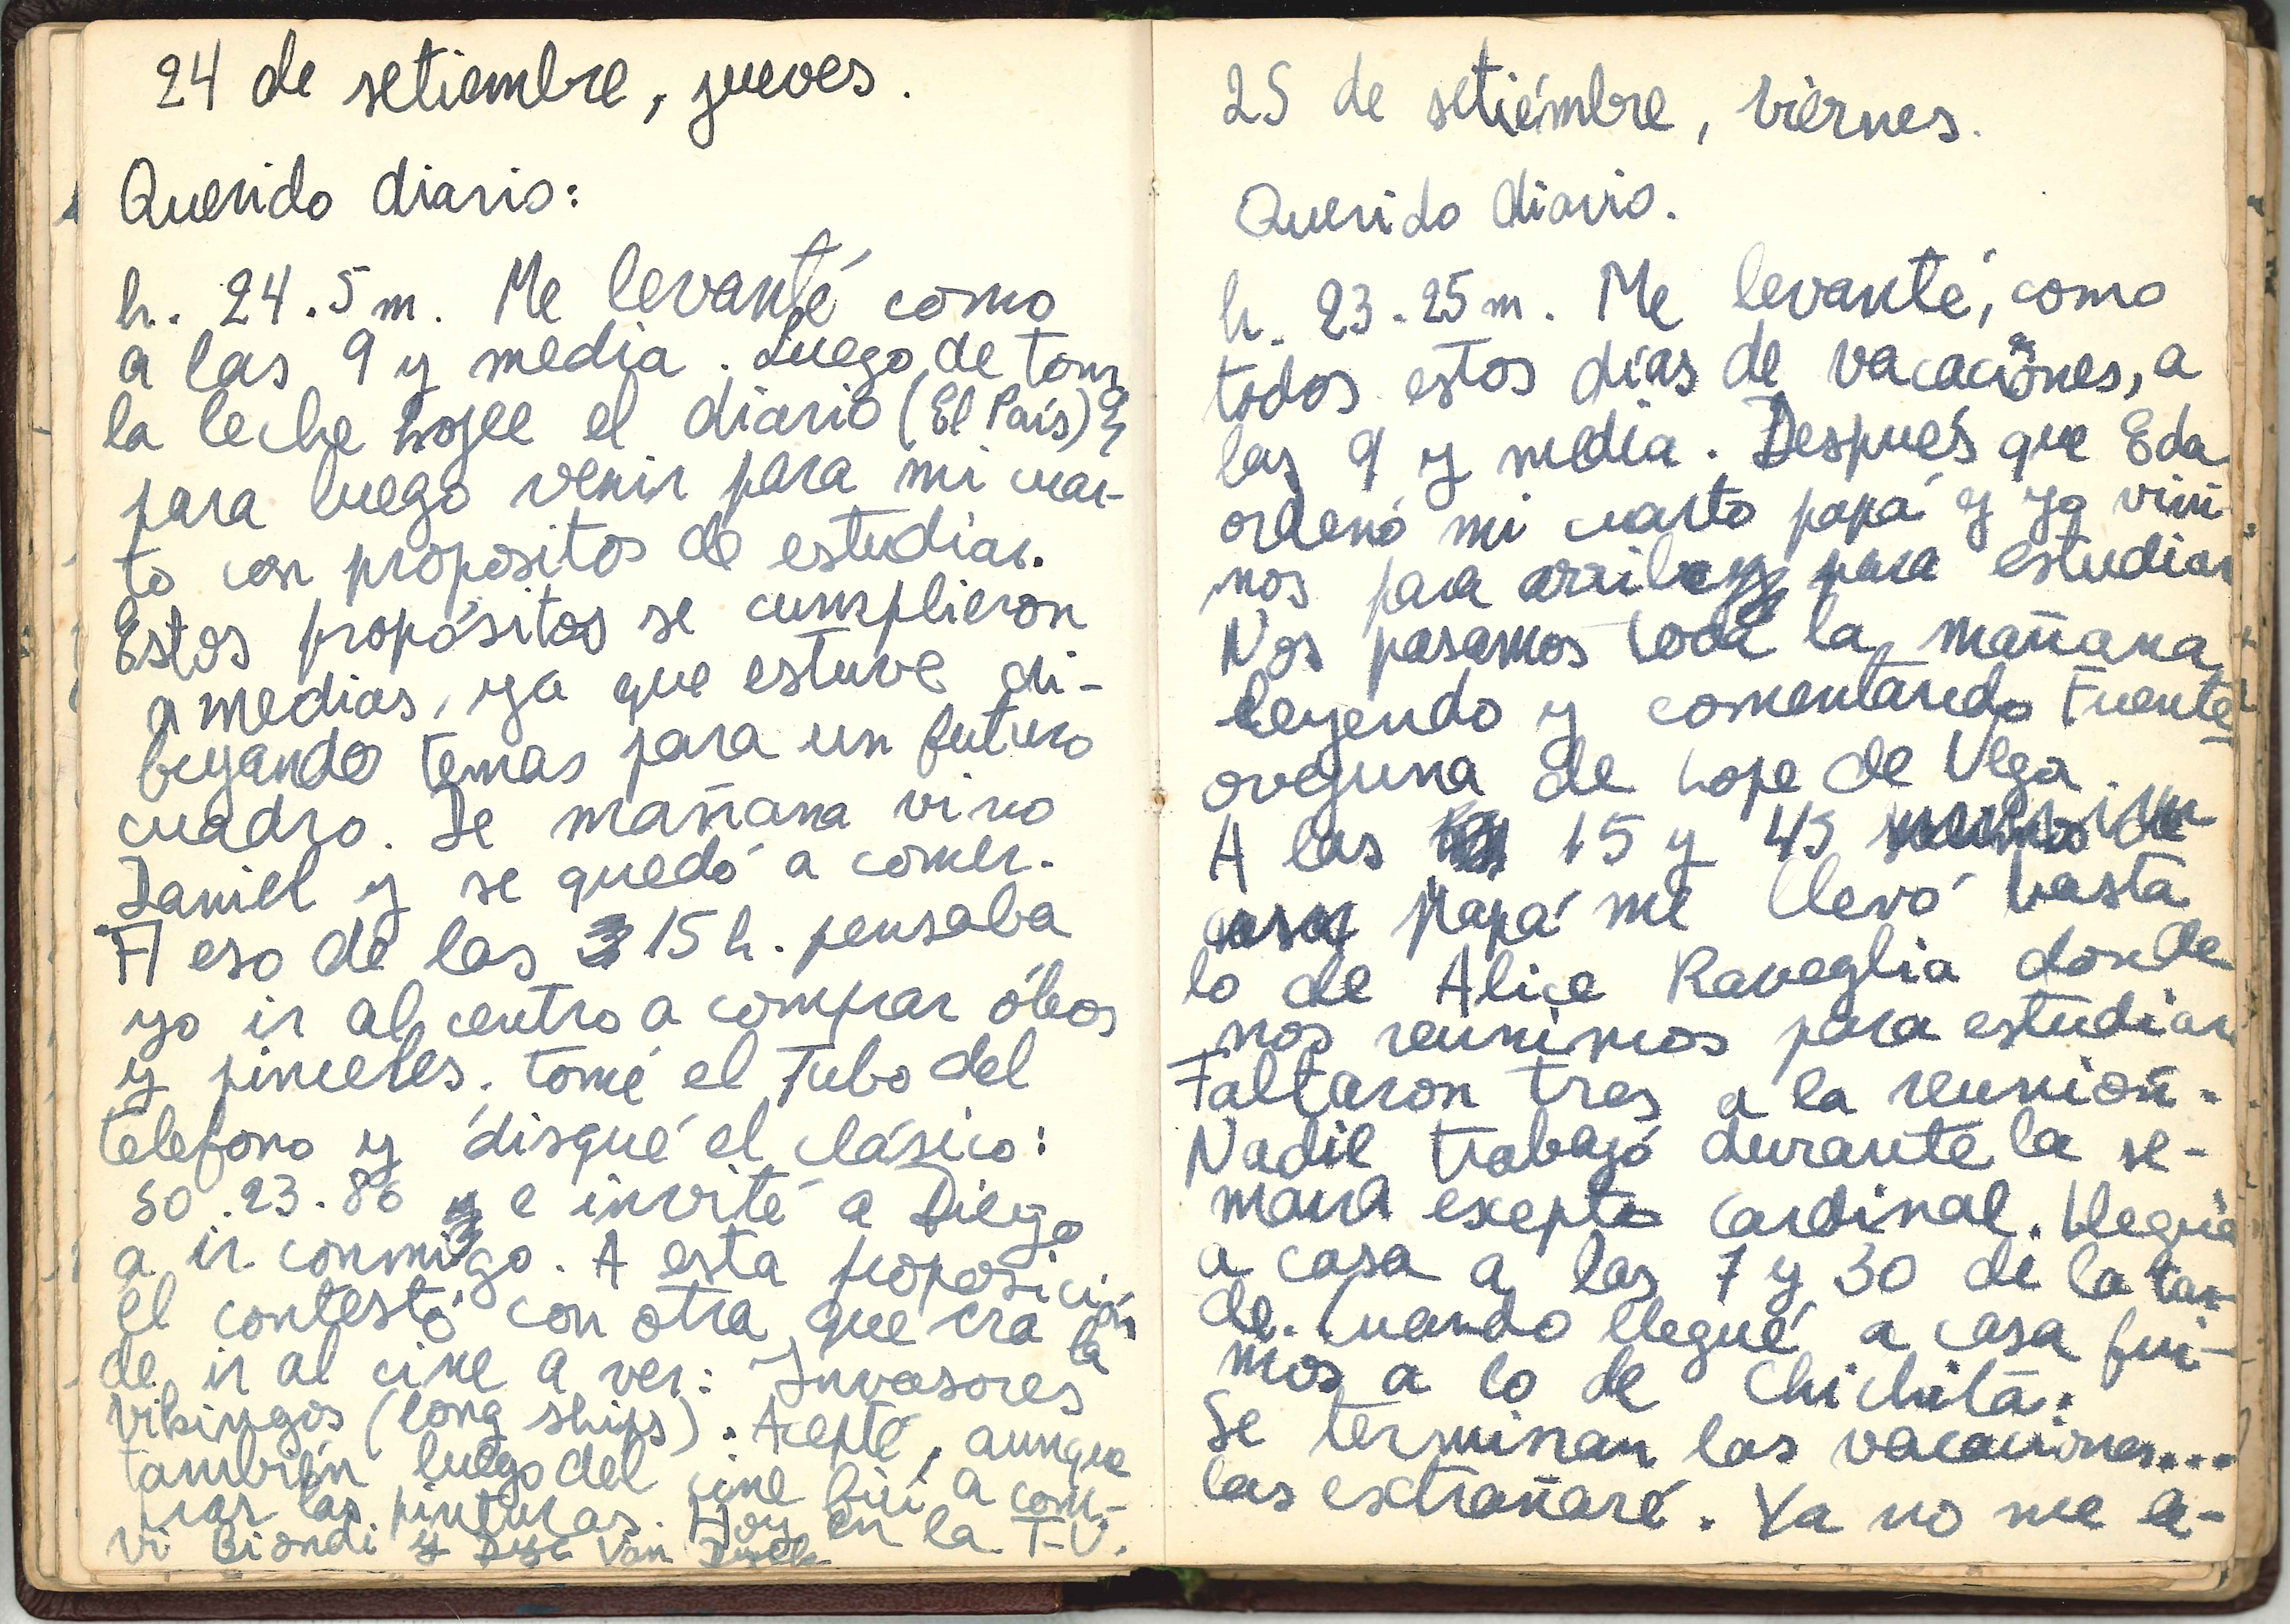 24 de setiembre, jueves.
Querido diario:
h. 24.5 m. Me levanté como
a las 9 y media. Luego de tomar
la leche hojee el diario (El País)
para luego venir para mi cuar-
to con propositos de estudiar.
Estos propósitos se cumplieron
a medias, ya que estuve di-
bujando temas para un futuro
cuadro. De mañana vino
Daniel y se quedó a comer.
A eso de las 15 h. pensaba
yo ir al centro a comprar óleos
y pinceles. tomé el Tubo del
telefono y disqué el clásico:
50.23.86 e invité a Diego
a ir conmigo. A esta proposición
él contestó con otra que era la
de ir al cine a ver: Invasores
Vikingos (long ships). Acepté, aunque
también luego del cine fui a com-
prar las pinturas. Hoy en la T-V.
vi Biondi y Dyc Van Dyck
25 de setiémbre, viernes.
Querido diario.
h. 23.25 m. Me levanté, como
todos estos días de vacaciones, a
las 9 y media. Después que Eda
ordenó mi cuarto papá y yo vini-
mos para arriba para estudiar
Nos pasamos toda la mañana
leyendo y comentando Fuente
ovejuna de Lope de Vega.
A las 15 y 45
Papá me llevó hasta
lo de Alice Raveglia donde
nos reunimos para estudiar
Faltaron tres a la reunión.
Nadie trabajó durante la se-
mana exepto Cardinal. Llegué
a casa a las 7 y 30 de la tar-
de. Cuando llegué a casa fui-
mos a lo de Chichita.
Se terminan las vacaciones...
las extrañaré. Ya no me a-